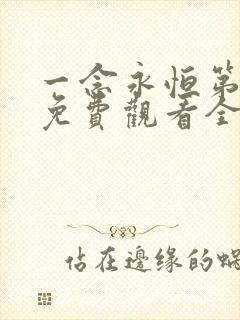 一念永恒第
免費觀看全
佔在邊缘的蝸